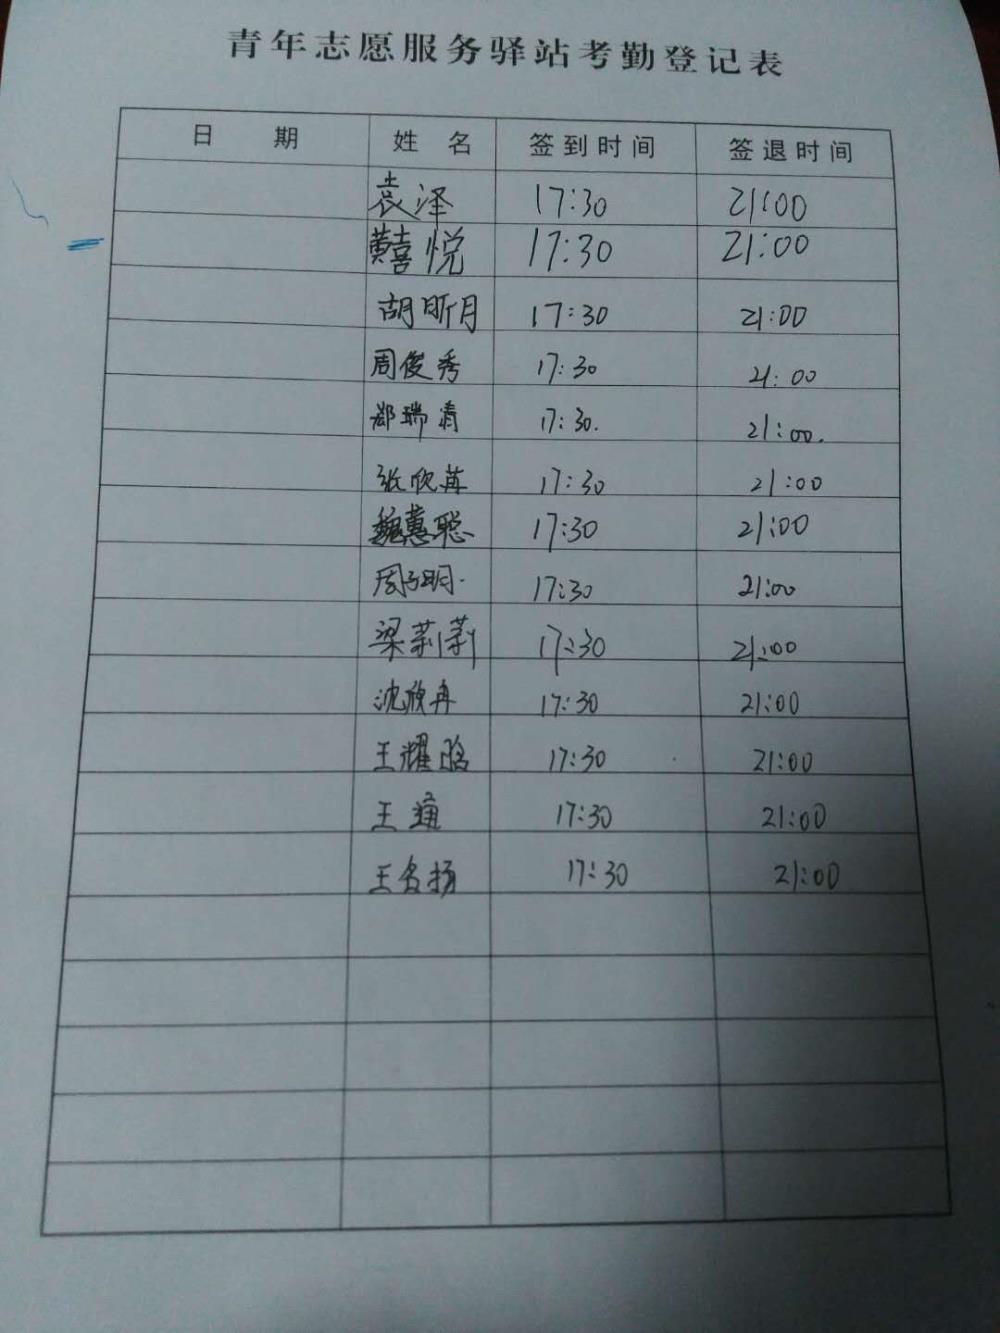 青年志愿服务驿站考勤登记表
日 期 姓 名 签到时间 签退时间
袁泽 17:30 21:00
黄喜悦 17:30 21:00
胡昕月 17:30 21:00
周俊秀 17:30 21:00
郑瑞清 17:30. 21:00.
张欣苒 17:30 21:00
魏蕙聪 17:30 21:00
17:30 21:00
梁莉莉 17:30 21:00
沈欣冉 17:30 21:00
王耀晗 17:30 21:00
王通 17:30 21:00
王名扬 17:30 21:00